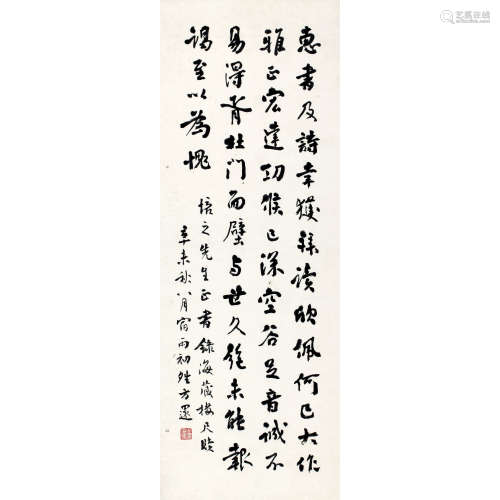 惠书及詩幸獲拜读欣佩何已大作
雅正宏達功候已深空谷足音诚不
易得胥杜门面壁与世久绝未能报
谒至以為愧
培之先生正书録海藏楼尺牍
辛未秋八月宿雨初晴方還